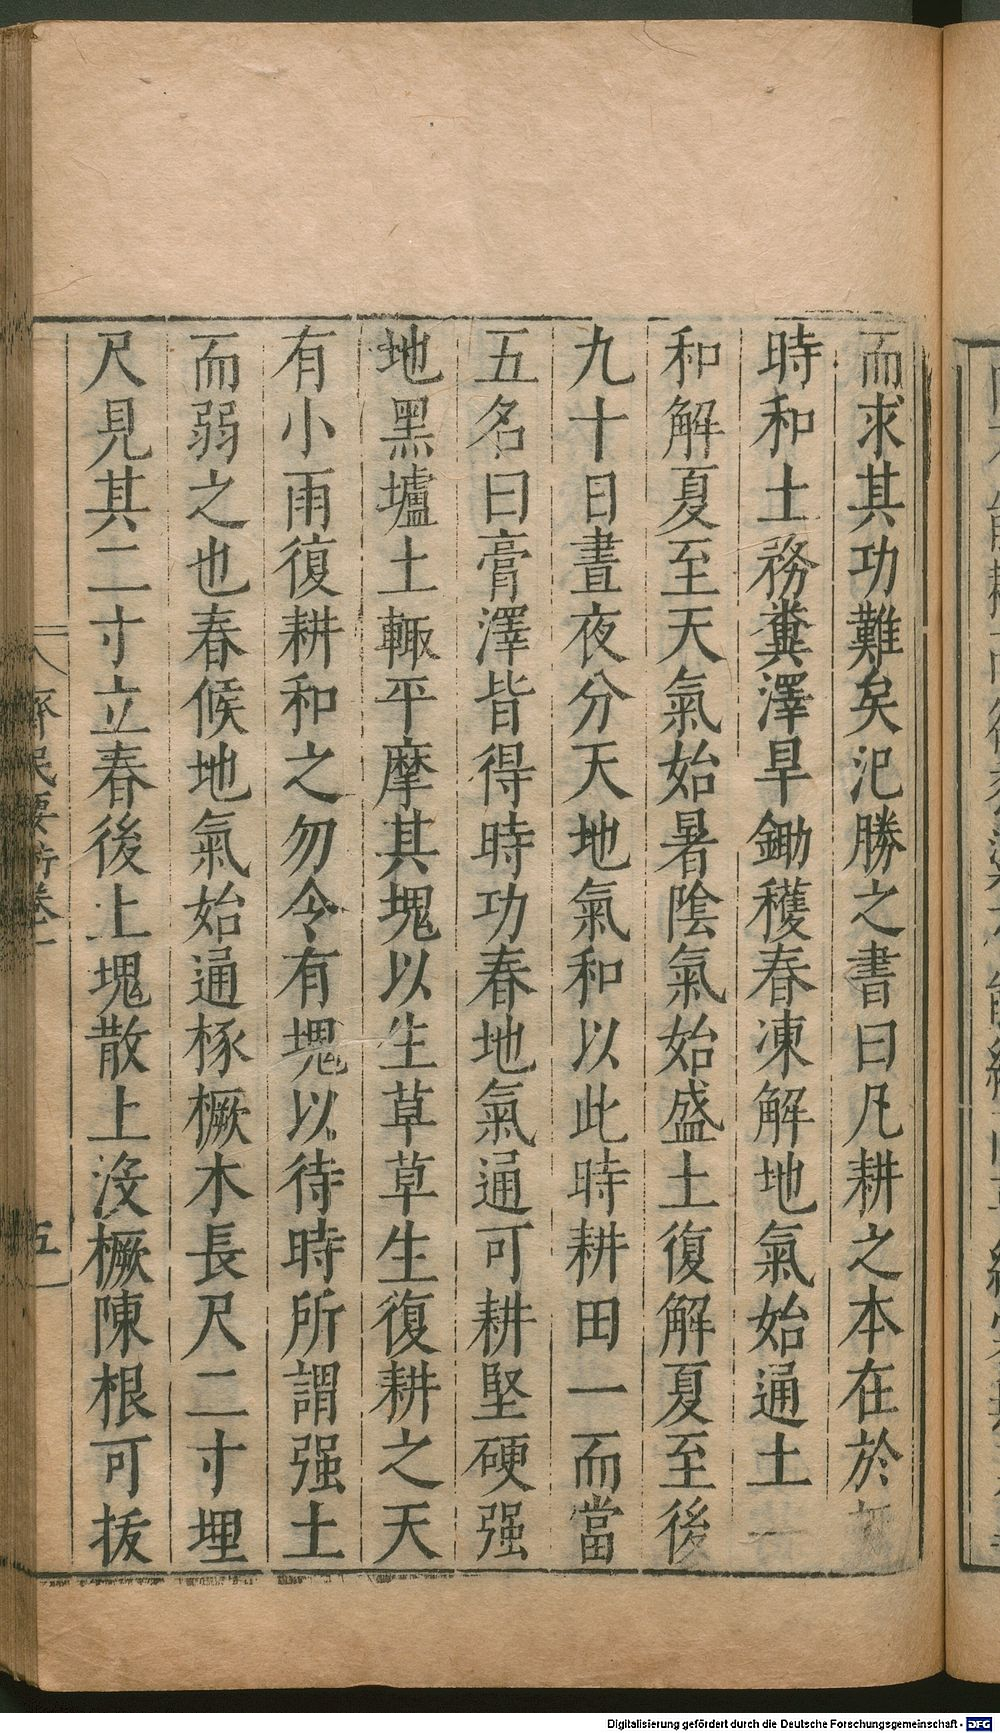 而求其功難矣氾勝之書曰凡耕之本在於
時和土務糞澤旱鋤穫春凍解地氣始通土
和解夏至天氣始暑陰氣始盛土復解夏至後
九十日晝夜分天地氣和以此時耕田一而當
五名曰膏澤皆得時功春地氣通可耕堅硬强
地黑壚土輙平摩其塊以生草草生復耕之天
有小雨復耕和之勿令有塊以待時所謂强土
而弱之也春候地氣始通椓橛木長尺二寸埋
尺見其二寸立春後上塊散上没橛陳根可拔
齊民要術卷一
五
Digitalisierung gefördert durch die Deutsche Forschungsgemeinschaft - DFG